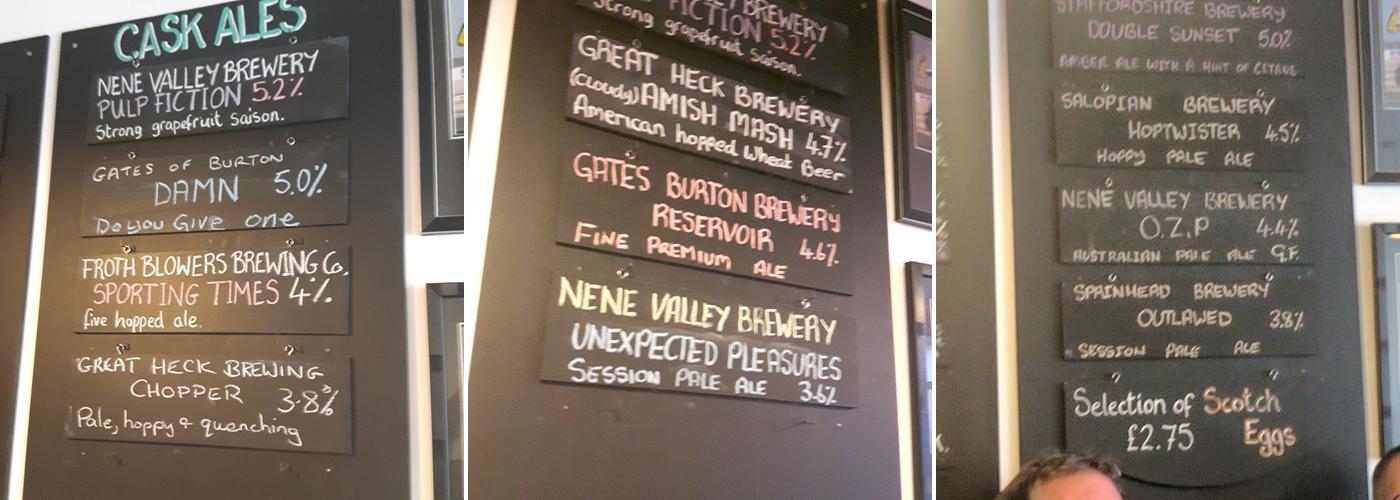 CASK ALES
NENE VALLEY BREWERY
PULP FICTION 5.2%
Strong grapefruit saison.
GATES OF BURTON
DAMN 5.0%
Do you Give one
FROTH BLOWERS BREWING Co.
SPORTING TIMES 4%
five hopped ale.
GREAT HECK BREWING
CHOPPER 3.8%
Pale, hoppy & quenching
BREWERY
FICTION 5.2%
Strong grapefruit saison.
GREAT HECK BREWERY
(Cloudy) AMISH MASH 4.7%
American hopped Wheat Beer
GATES BURTON BREWERY
RESERVOIR 4.6%
FINE PREMIUM ALE
NENE VALLEY BREWERY
UNEXPECTED PLEASURES
SESSION PALE ALE 3.6%
STAFFORDSHIRE BREWERY
DOUBLE SUNSET 5.0%
AMBER ALE WITH A HINT OF CITRUS
SALOPIAN BREWERY
HOPTWISTER 4.5%
HOPPY PALE ALE
NENE VALLEY BREWERY
O.Z.P 4.4%
AUSTRALIAN PALE ALE G.F.
SPAINHEAD BREWERY
OUTLAWED 3.8%
SESSION PALE ALE
Selection of Scotch
£2.75 Eggs